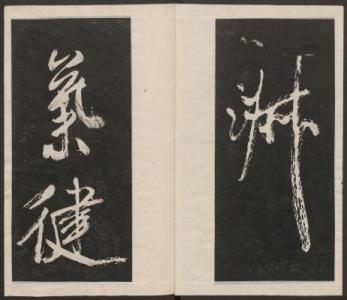 淋
氣健